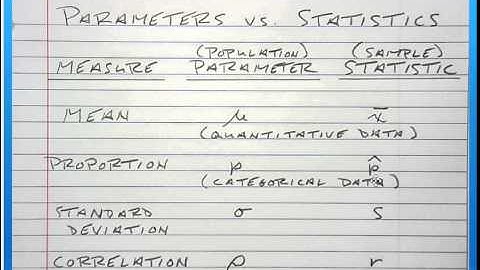 PARAMETERS VS. STATISTICS
(POPULATION) (SAMPLE)
MEASURE PARAMETER STATISTIC
MEAN μ x̄
(QUANTITATIVE DATA)
PROPORTION p p̂
(CATEGORICAL DATA)
STANDARD σ s
DEVIATION
CORRELATION ρ r